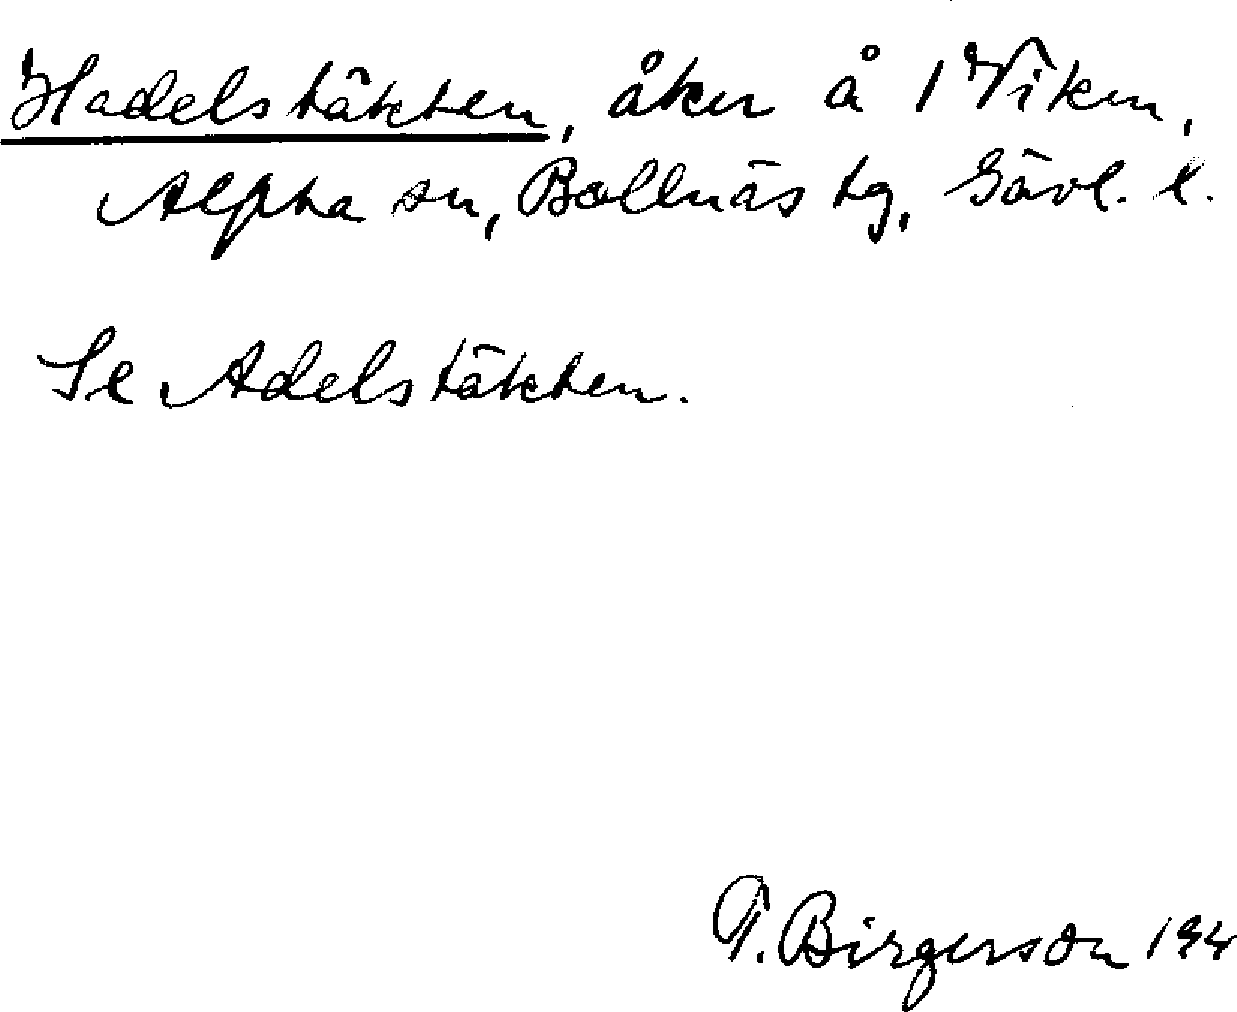 Hadelstäkten, åker å 1 Viken,
Alfta sn, Bollnäs tg, Gävl. l.
Se Adelstäkten.
T. Birgerson 194